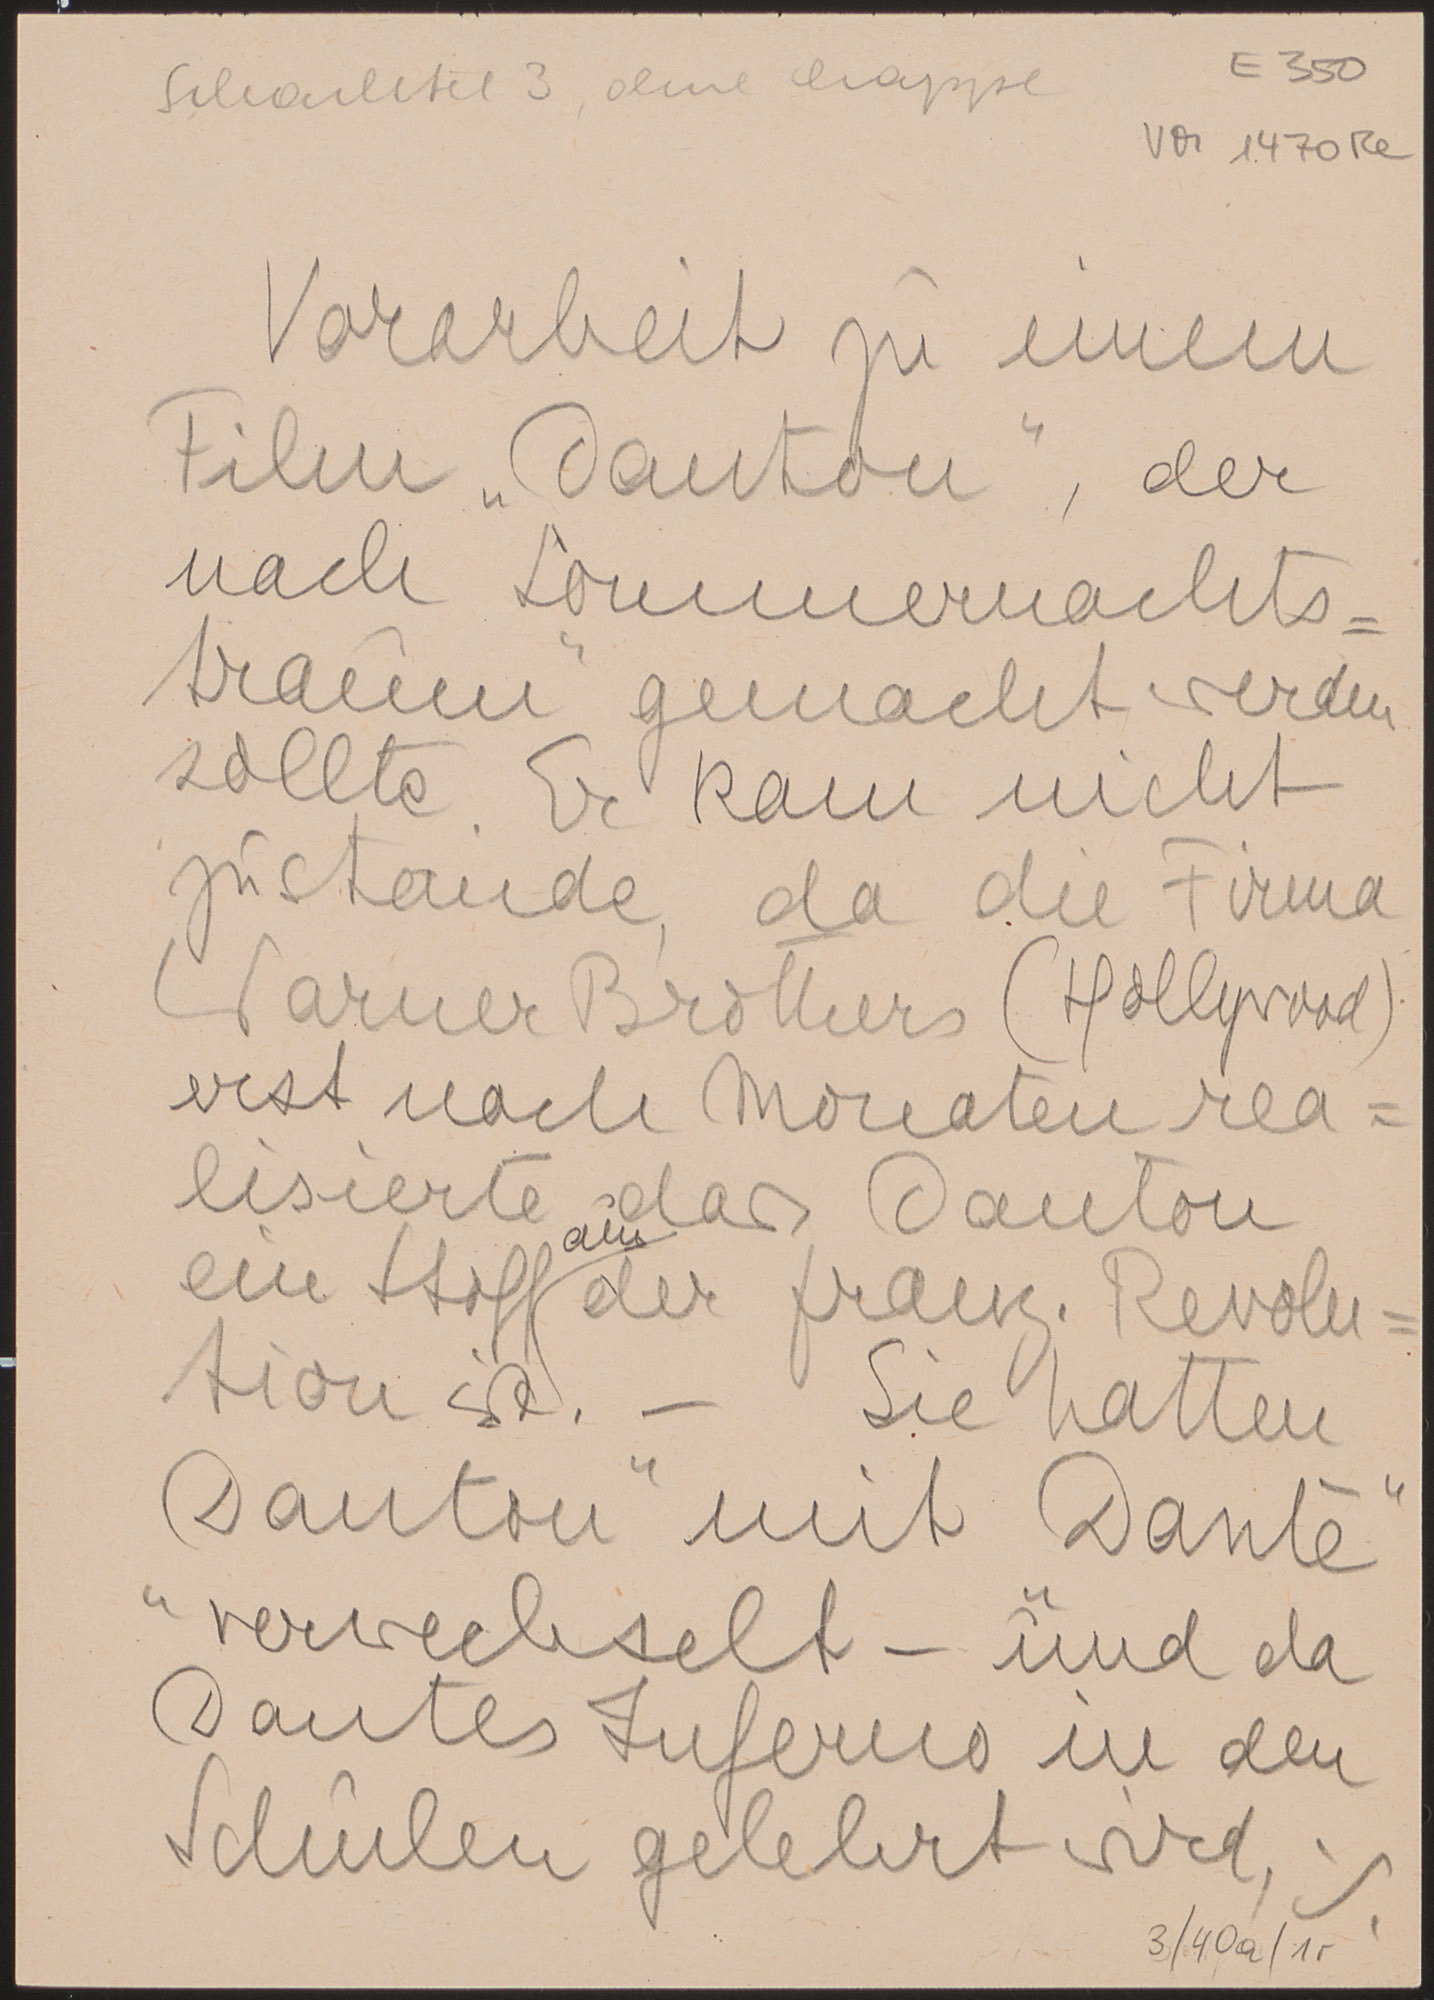 Schachtel 3, ohne Mappe
E 350
VM 1470 Re
Vorarbeit zu einem
Film „Danton“, der
nach Sommernachts=
traum“ gemacht werden
sollte. Er kam nicht
zustande, da die Firma
Warner Brothers (Hollywood)
erst nach Monaten rea=
lisierte dass Danton
ein Stoff aus der franz. Revolu=
tion ist. – Sie hatten
Danton“ mit Dante“
“verwechselt – und da
Dantes Inferno in den
Schulen gelehrt wird, ./.
3/40a/1r